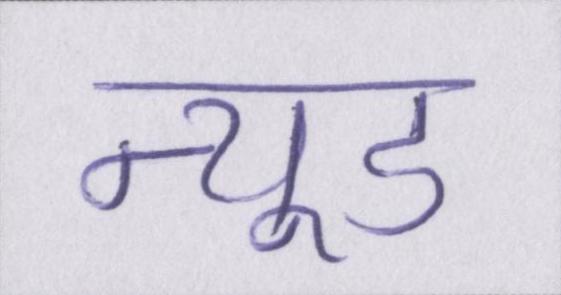 न्यूड